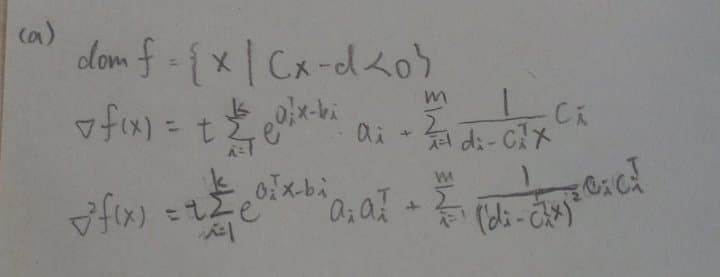 (a)
dom f = {x | Cx-d<0}
∇f(x) = t ∑_{i=1}^{k} e^{a_i^T x - b_i} a_i + ∑_{i=1}^{m} \frac{1}{d_i - c_i^T x} c_i
∇²f(x) = t ∑_{i=1}^{k} e^{a_i^T x - b_i} a_i a_i^T + ∑_{i=1}^{m} \frac{1}{(d_i - c_i^T x)^2} c_i c_i^T